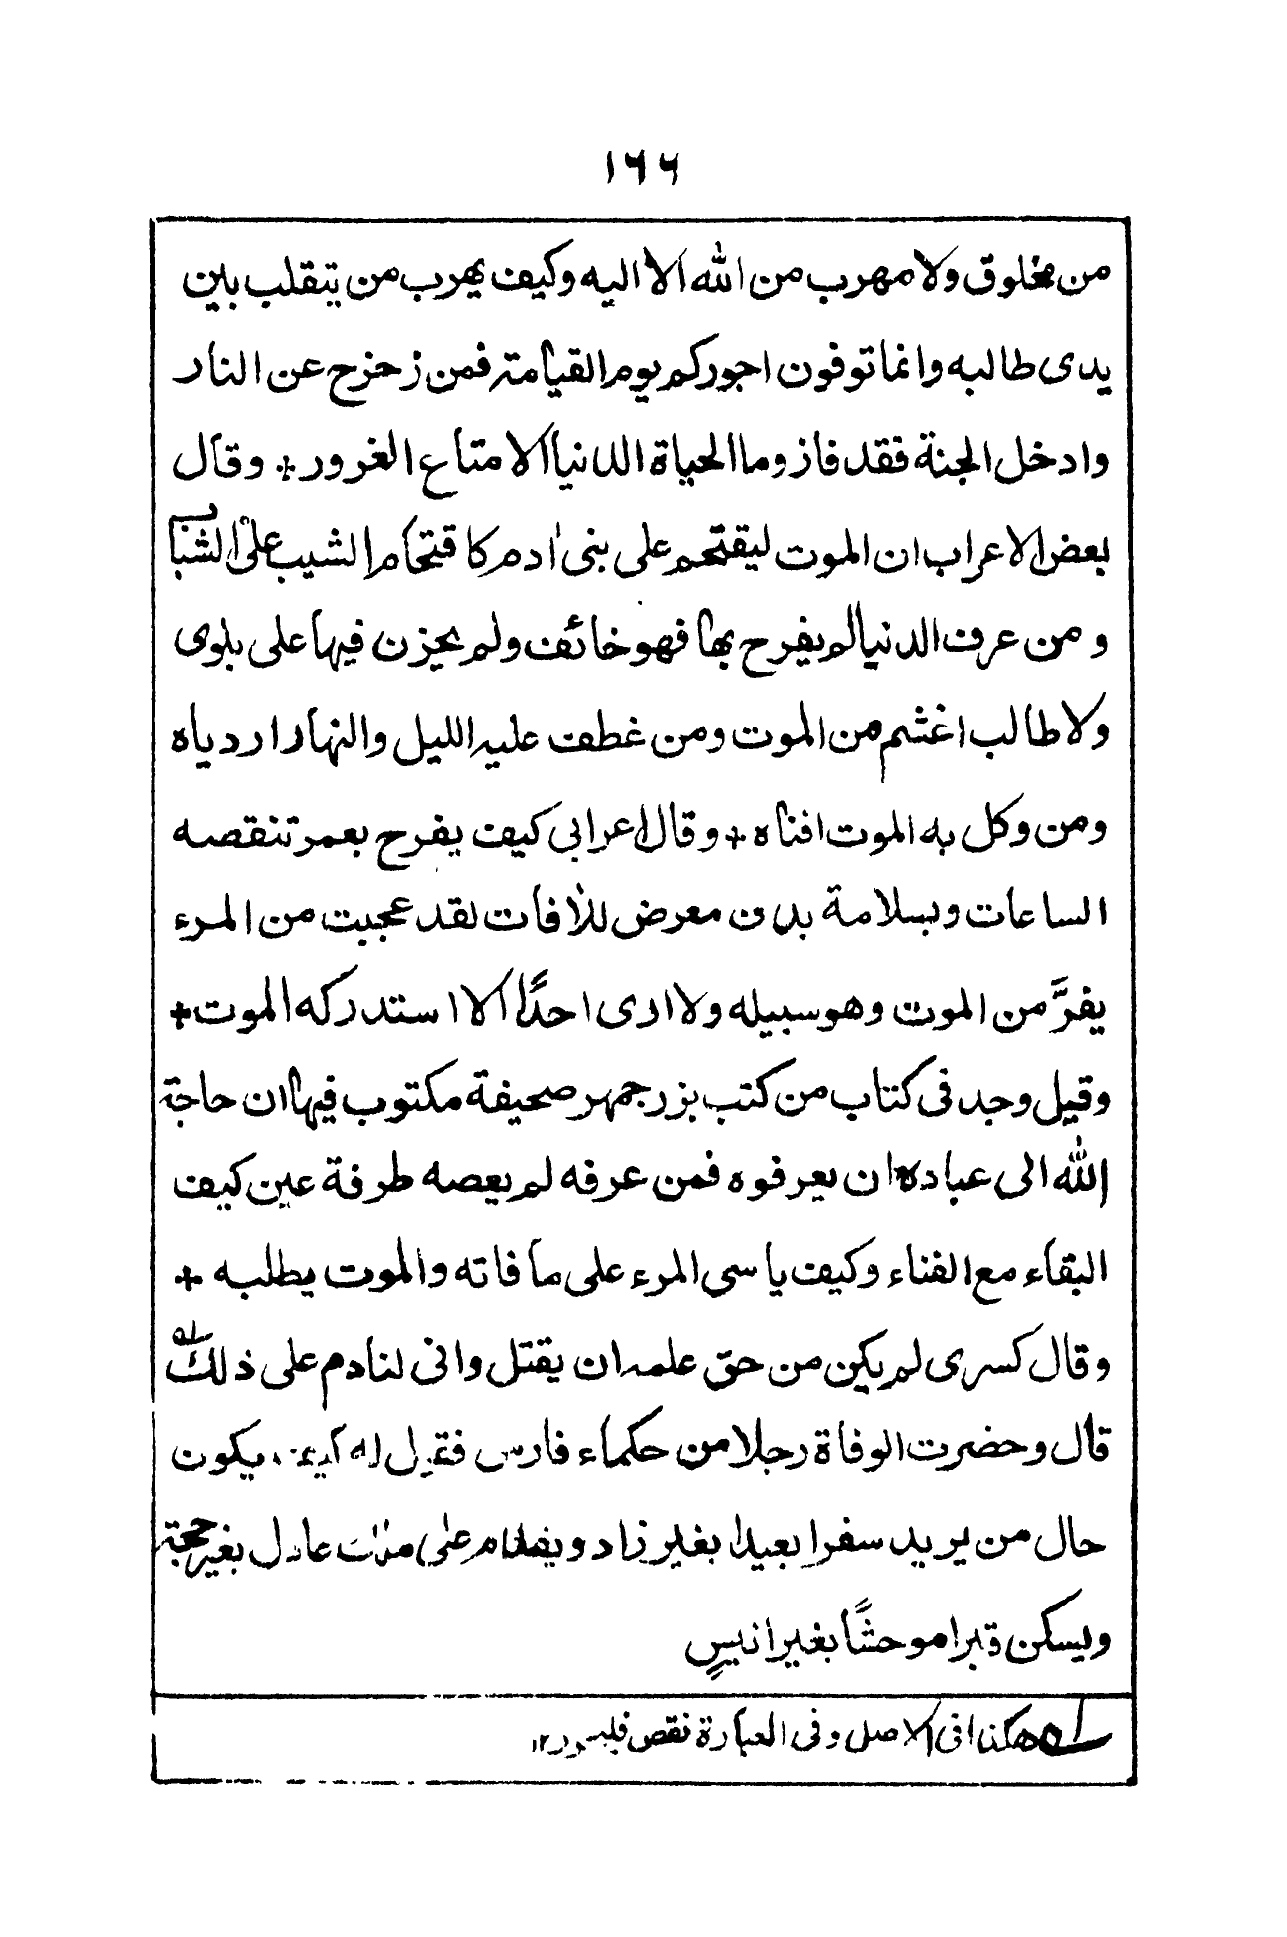 ١٦٦
من مخلوق ولا مهرب من الله الا اليه وكيف يهرب من يتقلب بين
يدى طالبه وانما توفون اجوركم يوم القيامة فمن زحزح عن النار
وادخل الجنة فقد فاز وما الحياة الدنيا الا متاع الغرور + وقال
بعض الاعراب ان الموت ليقتحم على بنى اٰدم كاقتحام الشيب على الشباب
ومن عرف الدنيا لم يفرح بها فهو خائف ولم يحزن فيها على بلوى
ولا طالب اغشم من الموت ومن عطف عليه الليل والنهار اردياه
ومن وكل به الموت افناه + وقال اعرابى كيف يفرح بعمر تنقصه
الساعات وبسلامة بدن معرض للاٰفات لقد عجبت من المرء
يفرَّ من الموت وهو سبيله ولا ارى احدًا الا استدركه الموت +
وقيل وجد فى كتاب من كتب بزرجمهر صحيفة مكتوب فيها ان حاجة
الله الى عباده ان يعرفوه فمن عرفه لم يعصه طرفة عين كيف
البقاء مع الفناء وكيف ياسى المرء على ما فاته والموت يطلبه +
وقال كسرى لم يكن من حق علمه ان يقتل وانى لنادم على ذلك له
قال وحضرت الوفاة رجلا من حكماء فارس فقيل له كيف يكون
حال من يريد سفرا بعيدا بغير زاد ويقدم على ملك عادل بغير حجة
ويسكن قبرا موحشًا بغير انيسٍ
له هكذا فى الاصل وفى العبارة نقص ١٢